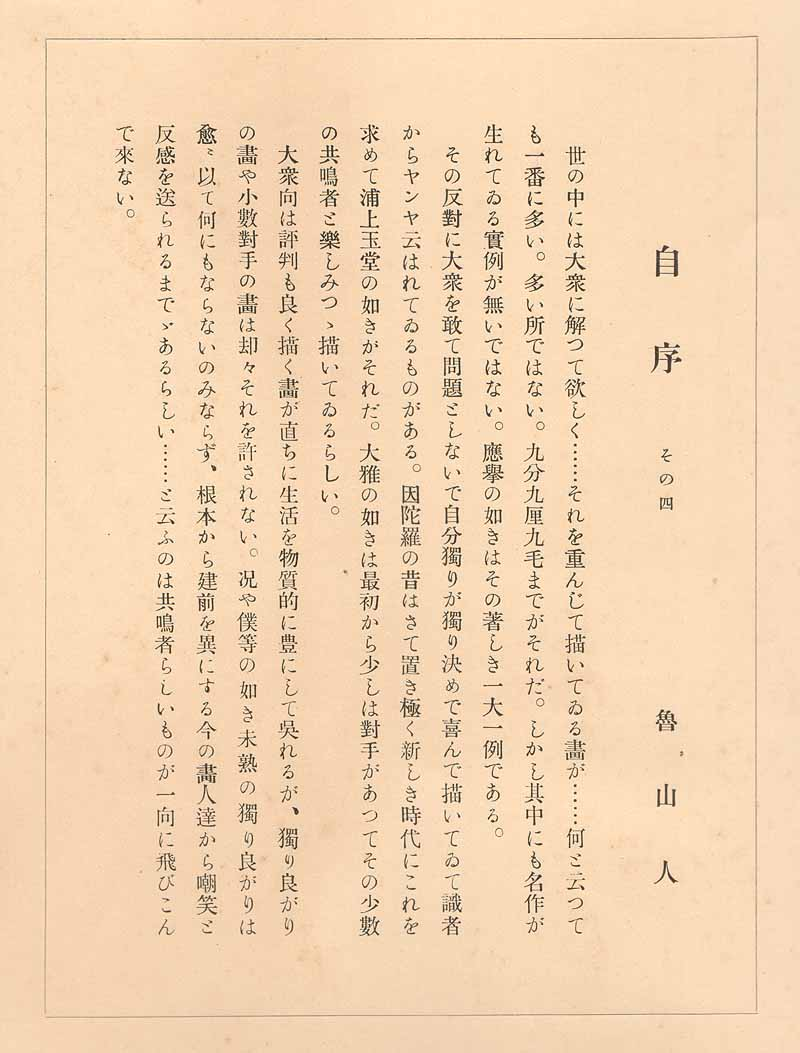 自序 その四 魯山人
世の中には大衆に解つて欲しく……それを重んじて描いてゐる畵が……何と云つて
も一番に多い。多い所ではない。九分九厘九毛までがそれだ。しかし其中にも名作が
生れてゐる實例が無いではない。應擧の如きはその著しき一大一例である。
その反對に大衆を敢て問題としないで自分獨りが獨り決めで喜んで描いてゐて識者
からヤンヤ云はれてゐるものがある。因陀羅の昔はさて置き極く新しき時代にこれを
求めて浦上玉堂の如きがそれだ。大雅の如きは最初から少しは對手があつてその少數
の共鳴者と樂しみつゝ描いてゐるらしい。
大衆向は評判も良く描く畵が直ちに生活を物質的に豊にして吳れるが、獨り良がり
の畵や小數對手の畵は却々それを許されない。况や僕等の如き未熟の獨り良がりは
愈〻以て何にもならないのみならず、根本から建前を異にする今の畵人達から嘲笑と
反感を送られるまでゞあるらしい……と云ふのは共鳴者らしいものが一向に飛びこん
で來ない。